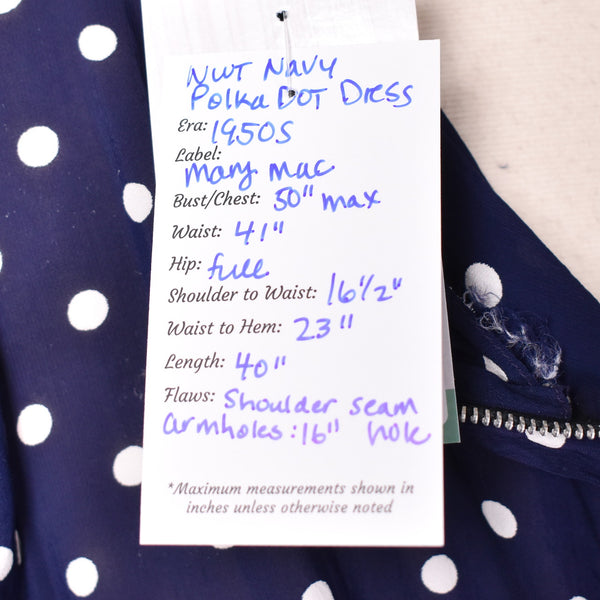 NWT Navy
Polka DOT Dress
Era: 1950s
Label:
Mary Mac
Bust/Chest: 50" max
Waist: 41"
Hip: full
Shoulder to Waist: 16 1/2"
Waist to Hem: 23"
Length: 40"
Flaws: Shoulder seam
armholes: 16" hole
*Maximum measurements shown in
inches unless otherwise noted